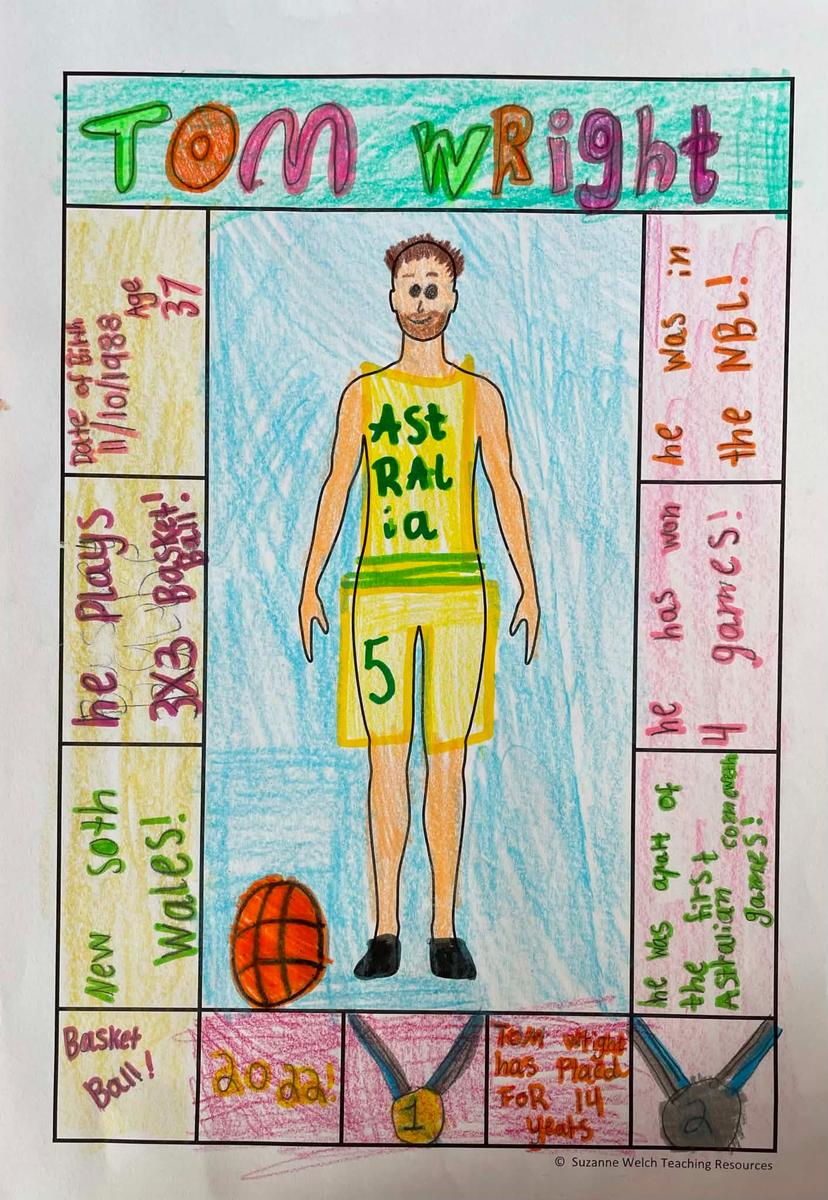 TOM wRight
Date of Birth
11/10/1988
Age
37
he Plays
3X3 Basket!
Ball!
New soth
Wales!
Basket
Ball!
ASt
RAL
ia
5
he was in
the NBL!
he has won
4 games!
he was apart of
the first
Astralian
games!
2022!
1
Tom wright
has Placd
FoR 14
years
2
© Suzanne Welch Teaching Resources